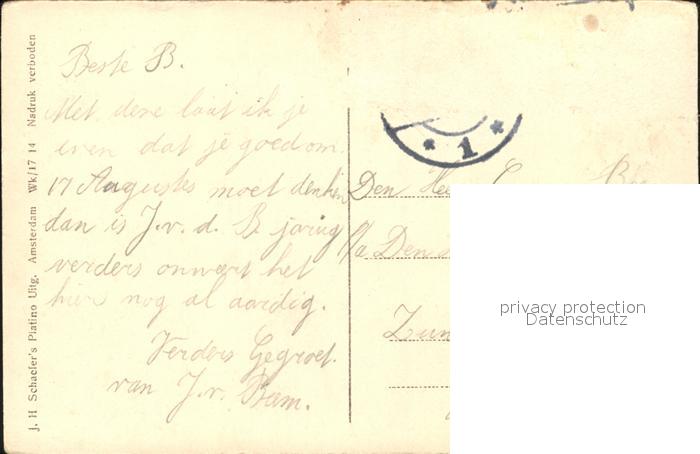 J. H Schaefer's Platino Uitg. Amsterdam Wk/17 14 Nadruk verboden
Beste B.
Met deze laat ik je
even dat je goed om
17 Augustes moet denken
dan is J. v. d. B jarig
verders onweert het
hier nog al aardig.
Verders Gegroet.
van J. v.
* 1 *
Den
Den
privacy protection
Datenschutz